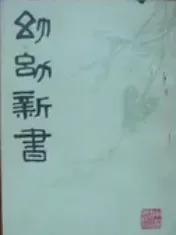 幼幼新書